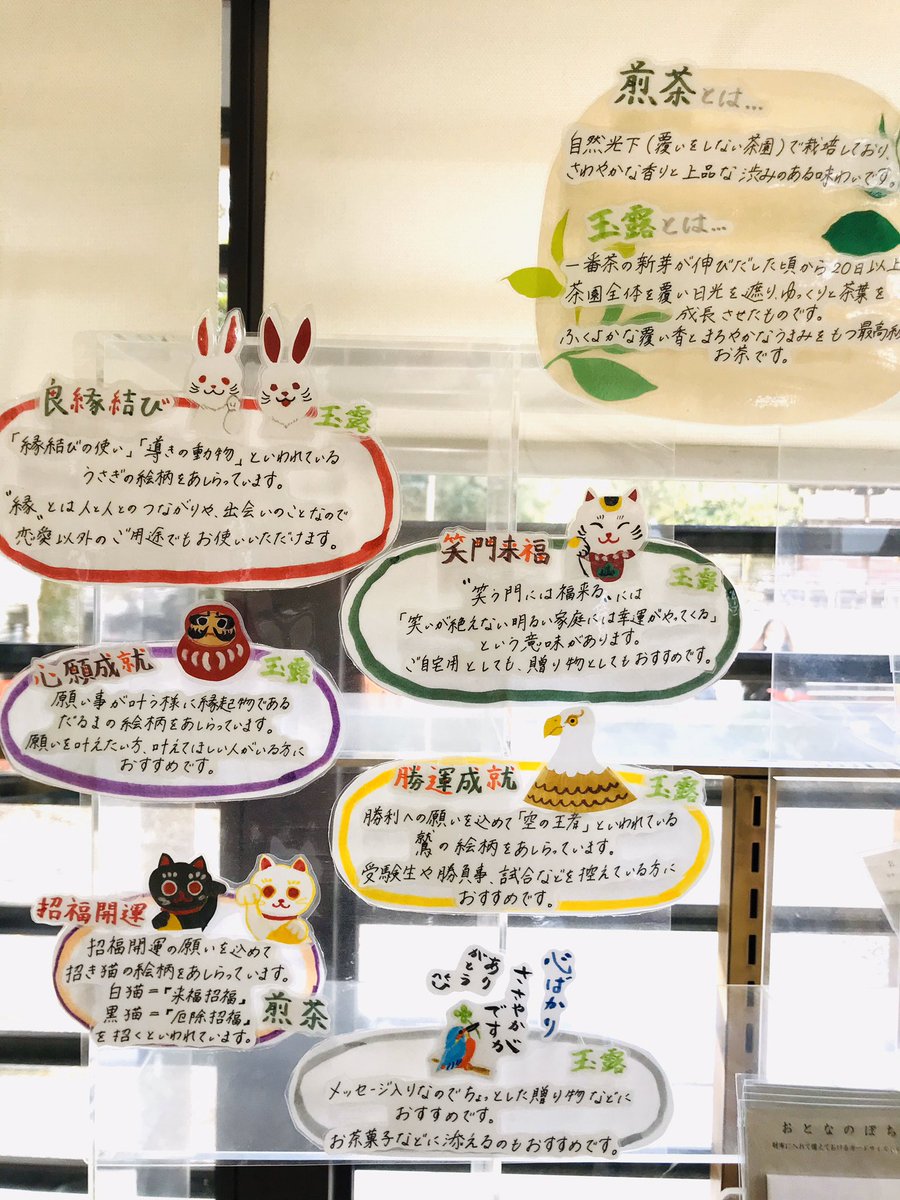 煎茶とは…
自然光下(覆いをしない茶園)で栽培しており、
さわやかな香りと上品な渋みのある味わいです。
玉露とは…
一番茶の新芽が伸びだした頃から20日以上
茶園全体を覆い日光を遮り、ゆっくりと茶葉を
成長させたものです。
ふくよかな覆い香とまろやかなうまみをもつ最高級
お茶です。
良縁結び
玉露
「縁結びの使い」「導きの動物」といわれている
うさぎの絵柄をあしらっています。
"縁"とは人と人とのつながりや、出会いのことなので
恋愛以外のご用途でもお使いいただけます。
笑門来福
玉露
"笑う門には福来る"には
「笑いが絶えない明るい家庭には幸運がやってくる」
という意味があります。
ご自宅用としても、贈り物としてもおすすめです。
心願成就
玉露
願い事が叶う様に縁起物である
だるまの絵柄をあしらっています。
願いを叶えたい方、叶えてほしい人がいる方に
おすすめです。
勝運成就
玉露
勝利への願いを込めて「空の王者」といわれている
鷲の絵柄をあしらっています。
受験生や勝負事、試合などを控えている方に
おすすめです。
招福開運
招福開運の願いを込めて
招き猫の絵柄をあしらっています。
白猫=『来福招福』
黒猫=『厄除招福』
を招くといわれています。
煎茶
心ばかり
ささやか
ですが
ありがとう
玉露
メッセージ入りなのでちょっとした贈り物などに
おすすめです。
お茶菓子などに添えるのもおすすめです。
おとなのぽち